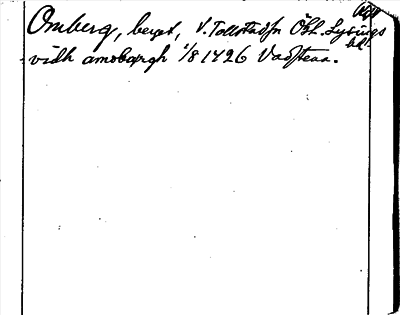 Omberg, berget, V. Tollstad sn Ögl. Lysings
hd.
vidh amobärgh 1/8 1426 Vadstena.